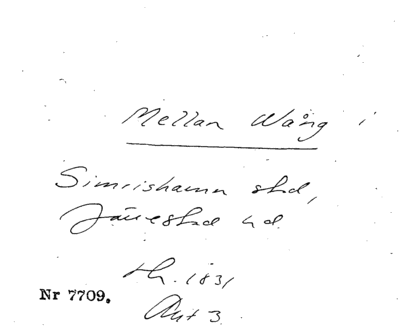 Mellan Wång i
Simrishamn stad,
Järrestad hd.
th. 1831
Nr 7709.
Akt 3